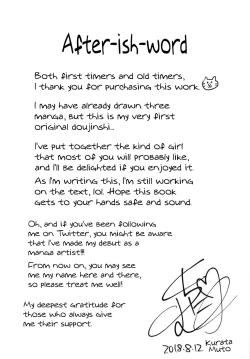 After-ish-word
Both first timers and old timers,
I thank you for purchasing this work.
I may have already drawn three
manga, but this is my very first
original doujinshi...
I've put together the kind of girl
that most of you will probably like,
and I'll be delighted if you enjoyed it.
As I'm writing this, I'm still working
on the text, lol. Hope this book
gets to your hands safe and sound.
Oh, and if you've been following
me on Twitter, you might be aware
that I've made my debut as a
manga artist!!!
From now on, you may see
me my name here and there,
so please treat me well!
My deepest gratitude for
those who always give
me their support.
2018.8.12 Kurata
Muto